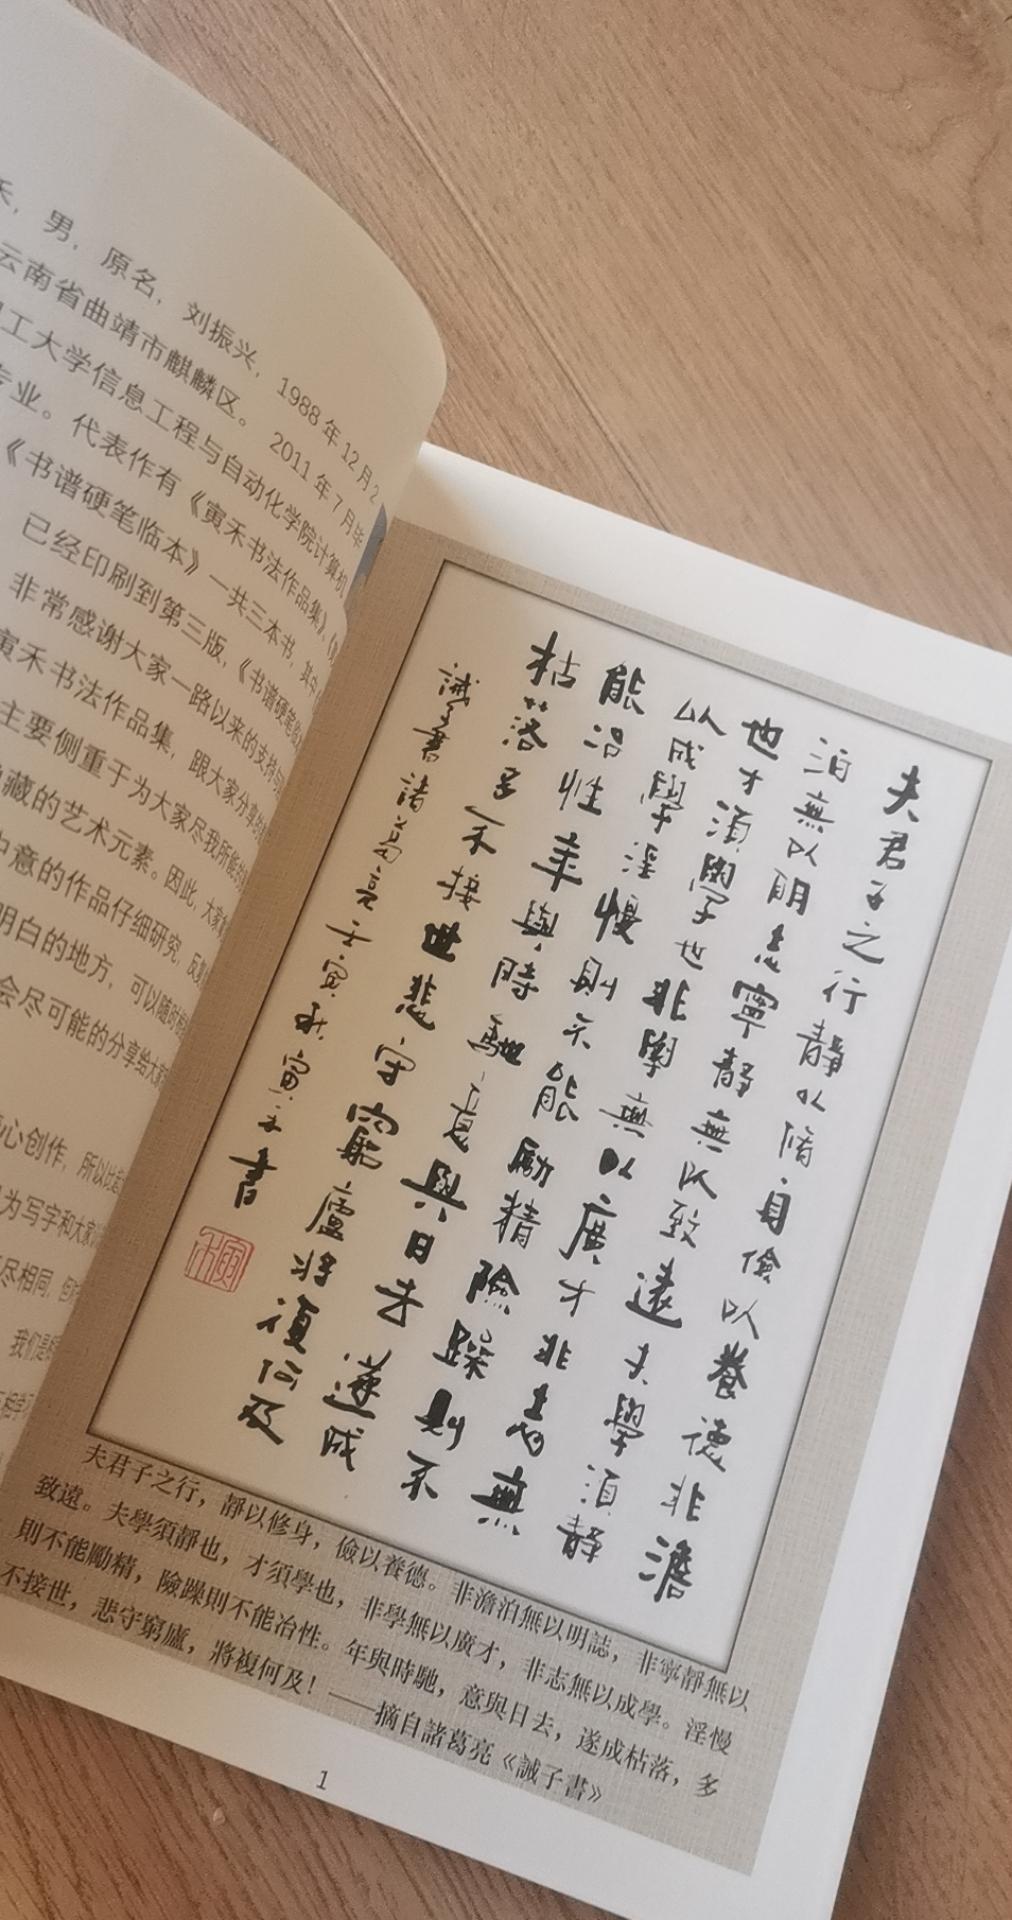 禾，男，原名，刘振兴，1988年12月2
云南省曲靖市麒麟区。2011年7月毕
工大学信息工程与自动化学院计算机
专业。代表作有《寅禾书法作品集》
《书谱硬笔临本》一共三本书，其中
已经印刷到第三版，《书谱硬笔临
非常感谢大家一路以来的支持与
寅禾书法作品集，跟大家分享的
主要侧重于为大家尽我所能的
藏的艺术元素。因此，大家
中意的作品仔细研究，反复
明白的地方，可以随时
会尽可能的分享给大家
心创作，所以比
为写字和大家
尽相同，但
我们是
夫君子之行靜以脩身儉以養德非澹
泊無以明志寧靜無以致遠夫學須靜
也才須學也非學無以廣才非志無
以成學淫慢則不能勵精險躁則不
能冶性年與時馳意與日去遂成
枯落多不接世悲守窮廬將復何及
誡子書諸葛亮壬寅秋寅禾書
寅禾
夫君子之行，靜以修身，儉以養德。非澹泊無以明誌，非寧靜無以
致遠。夫學須靜也，才須學也，非學無以廣才，非志無以成學。淫慢
則不能勵精，險躁則不能冶性。年與時馳，意與日去，遂成枯落，多
不接世，悲守窮廬，將複何及！——摘自諸葛亮《誡子書》
1